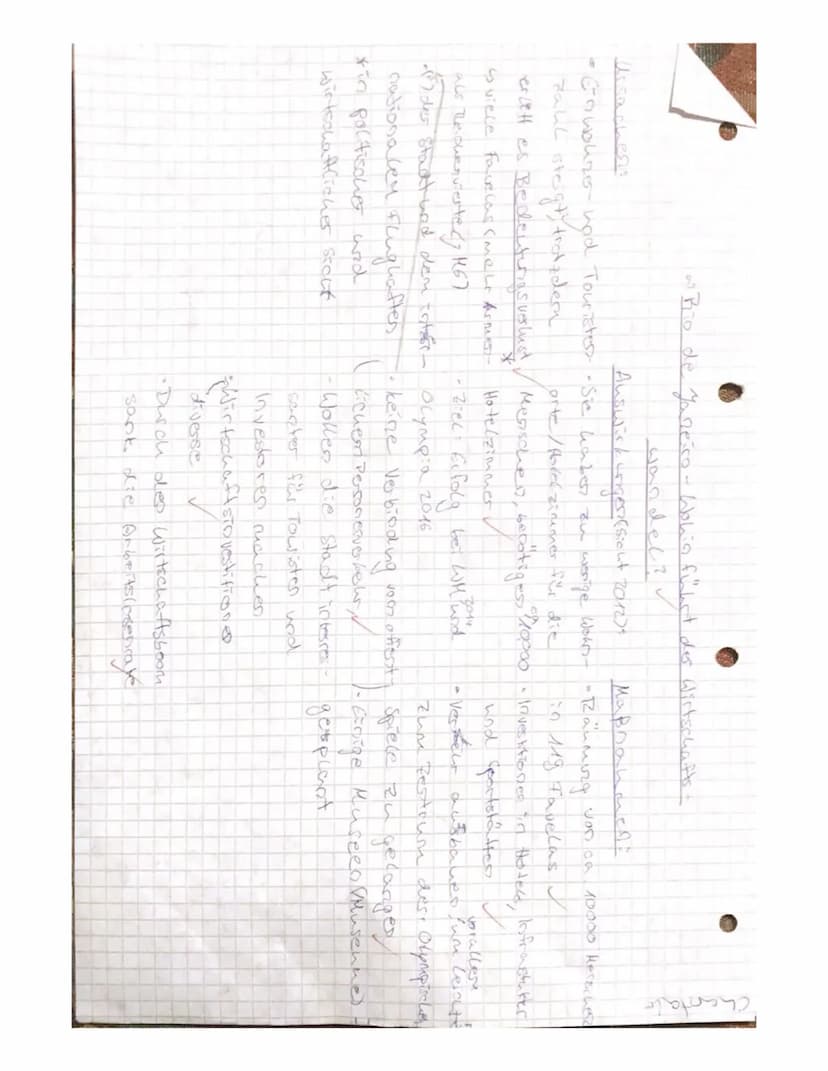 Rio de Janeiro - Wohin führt der Wirtschafts-
wandel?
Ursachen:
- Einwohner- und Touristen-
zahl steigt, trotzdem
erlitt es Bedeutungsverlust *
so viele Favelas (mehr Armen-
als Reichenviertel)
der Stadt und dem inter-
nationalen Flughafen
* in politischer und
wirtschaftlicher Sicht
Auswirkungen (Sicht 2012):
- Sie haben zu wenige Wohn-
orte/Hotelzimmer für die
Menschen, benötigen 10000
Hotelzimmer
- Ziel: Erfolg bei WM 2014 und
Olympia 2016
- keine Verbindung von öffent-
lichem Personenverkehr
- Wollen die Stadt interes-
santer für Touristen und
Investoren machen
- Wirtschaftsinvestitionen
diverse
- Durch den Wirtschaftsboom
sank die Arbeitslosenrate
Maßnahmen:
- Räumung von ca 10000 Menschen
in 119 Favelas
- Investitionen in Hotels, Infrastruktur
und Sportstätten
- Verkehr ausbauen, um leicht
vor allem
zum Zentrum der Olympischen
Spiele zu gelangen
- Einige Museen (Museume)
geplant